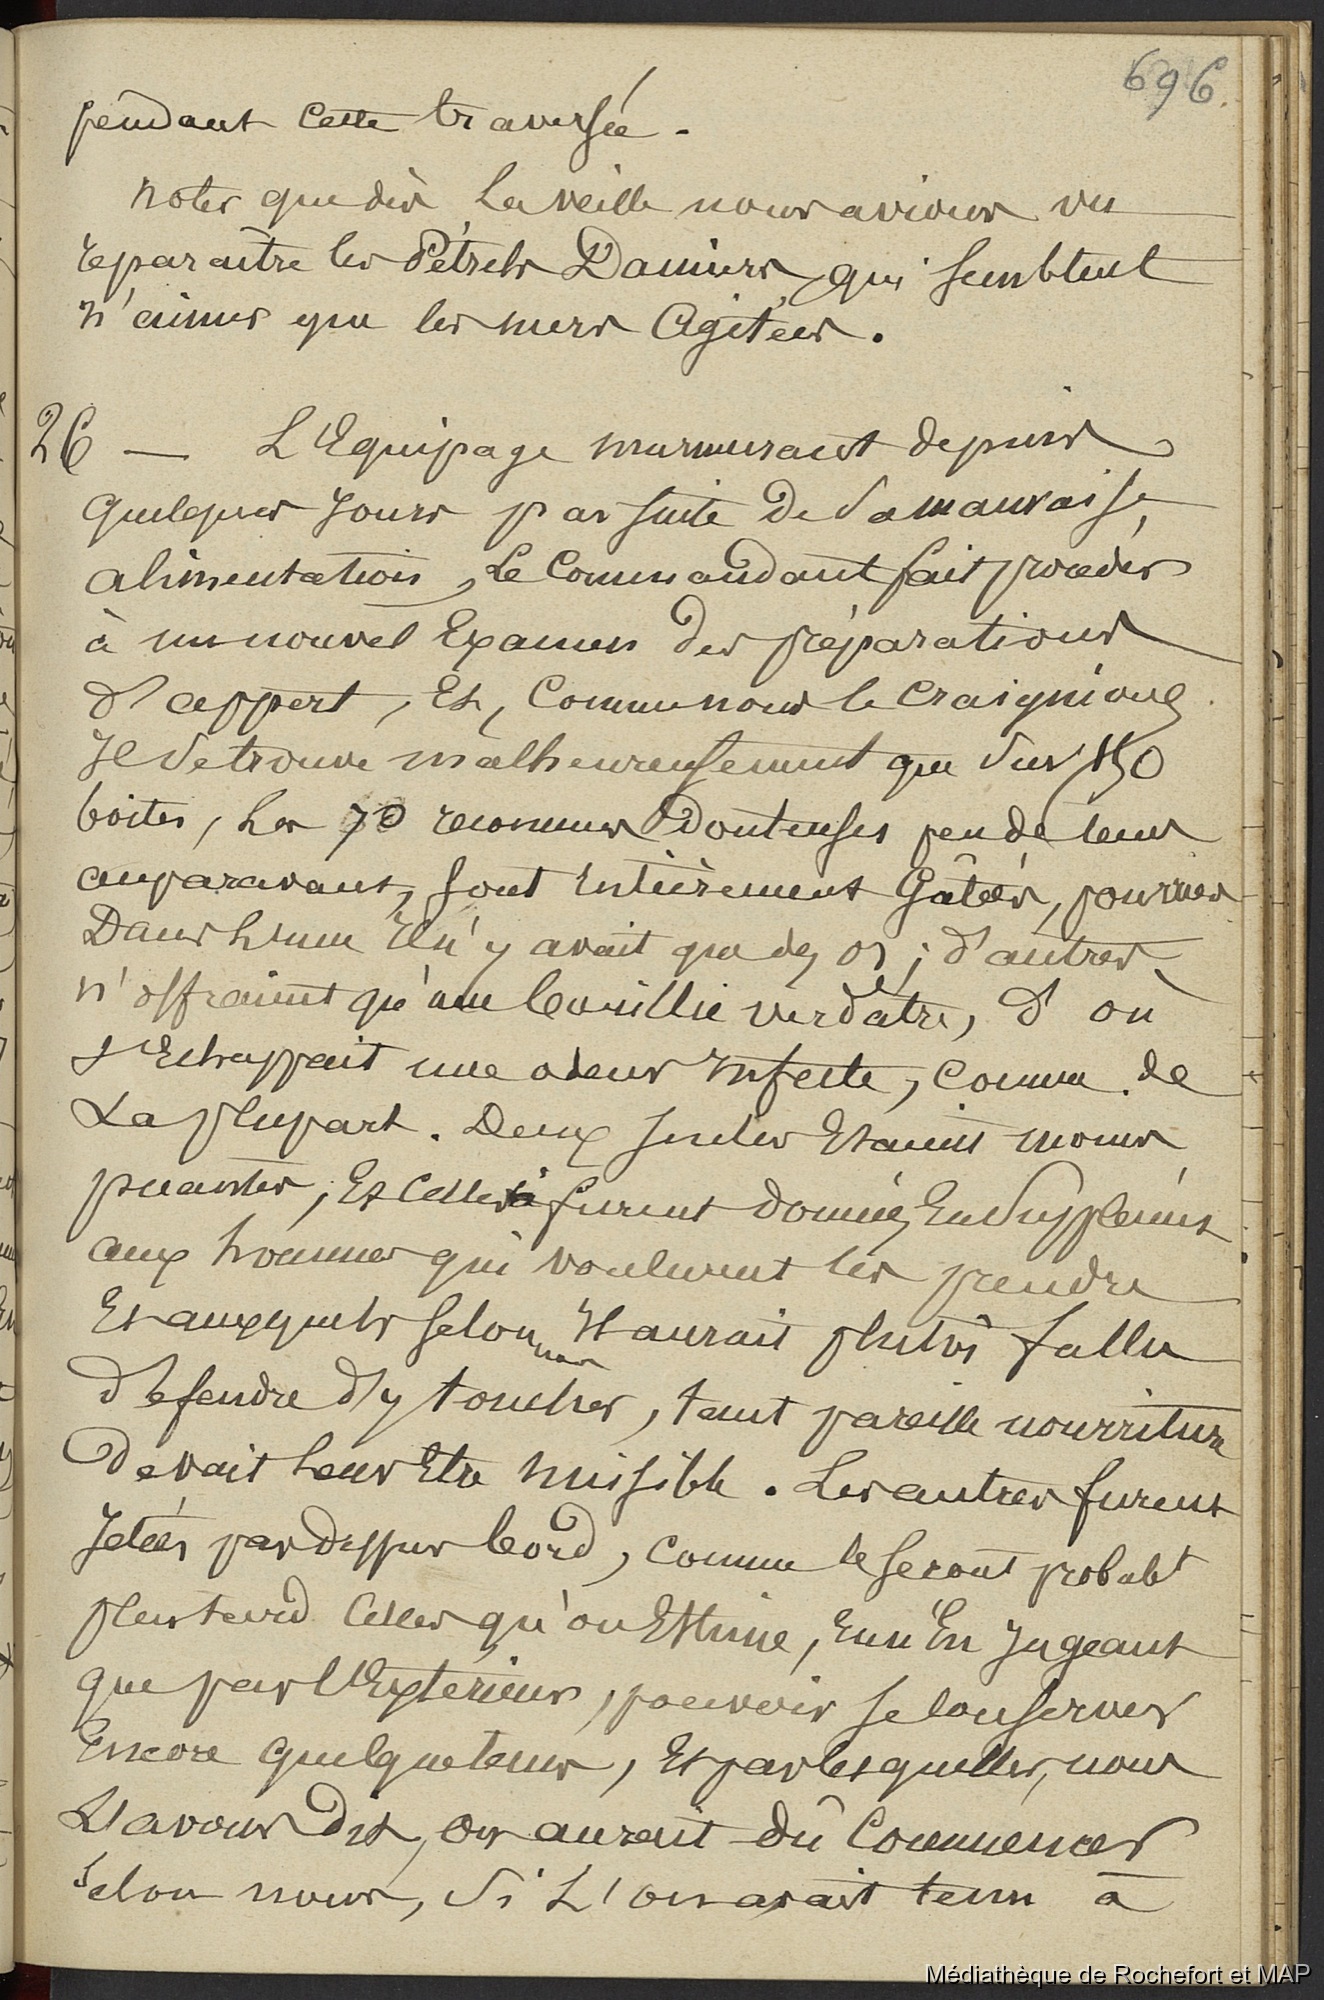 696.
pendant cette traversée.
Noter que dès la veille nous avions vu
reparaître les Pétrels Damiers, qui semblent
n'aimer que les mers Agitées.
26 — L'Equipage murmurant depuis
quelques jours par suite de sa mauvaise
alimentation, Le Commandant fait procéder
à un nouvel Examen des préparations
d'appert, Et, Comme nous le Craignions
Il se trouve malheureusement que sur 150
boites, Les 70 reconnues Douteuses peu de tems
auparavant, sont Entièrement Gâtées, pourries
Dans l'une Il n'y avait que des os; d'autres
n'offraient qu'une bouillie verdâtre, d'où
s'Echappait une odeur Infecte, comme de
La plupart. Deux seules Etaient moins
puantes, Et Celles furent données En Supplément
aux hommes qui voulurent les prendre
Et auxquels selon nous Il aurait plutôt fallu
défendre d'y toucher, tant pareille nourriture
devait leur Etre nuisible. Les autres furent
Jetées par dessus bord, comme le seront probabt
plus tard Celles qu'on Estime, En n'En Jugeant
que par l'Extérieur, pouvoir se Conserver
Encore quelque tems, Et par lesquelles, nous
L'avons dit, on aurait dû Commencer
selon nous, Si L'on avait tenu à
Médiathèque de Rochefort et MAP